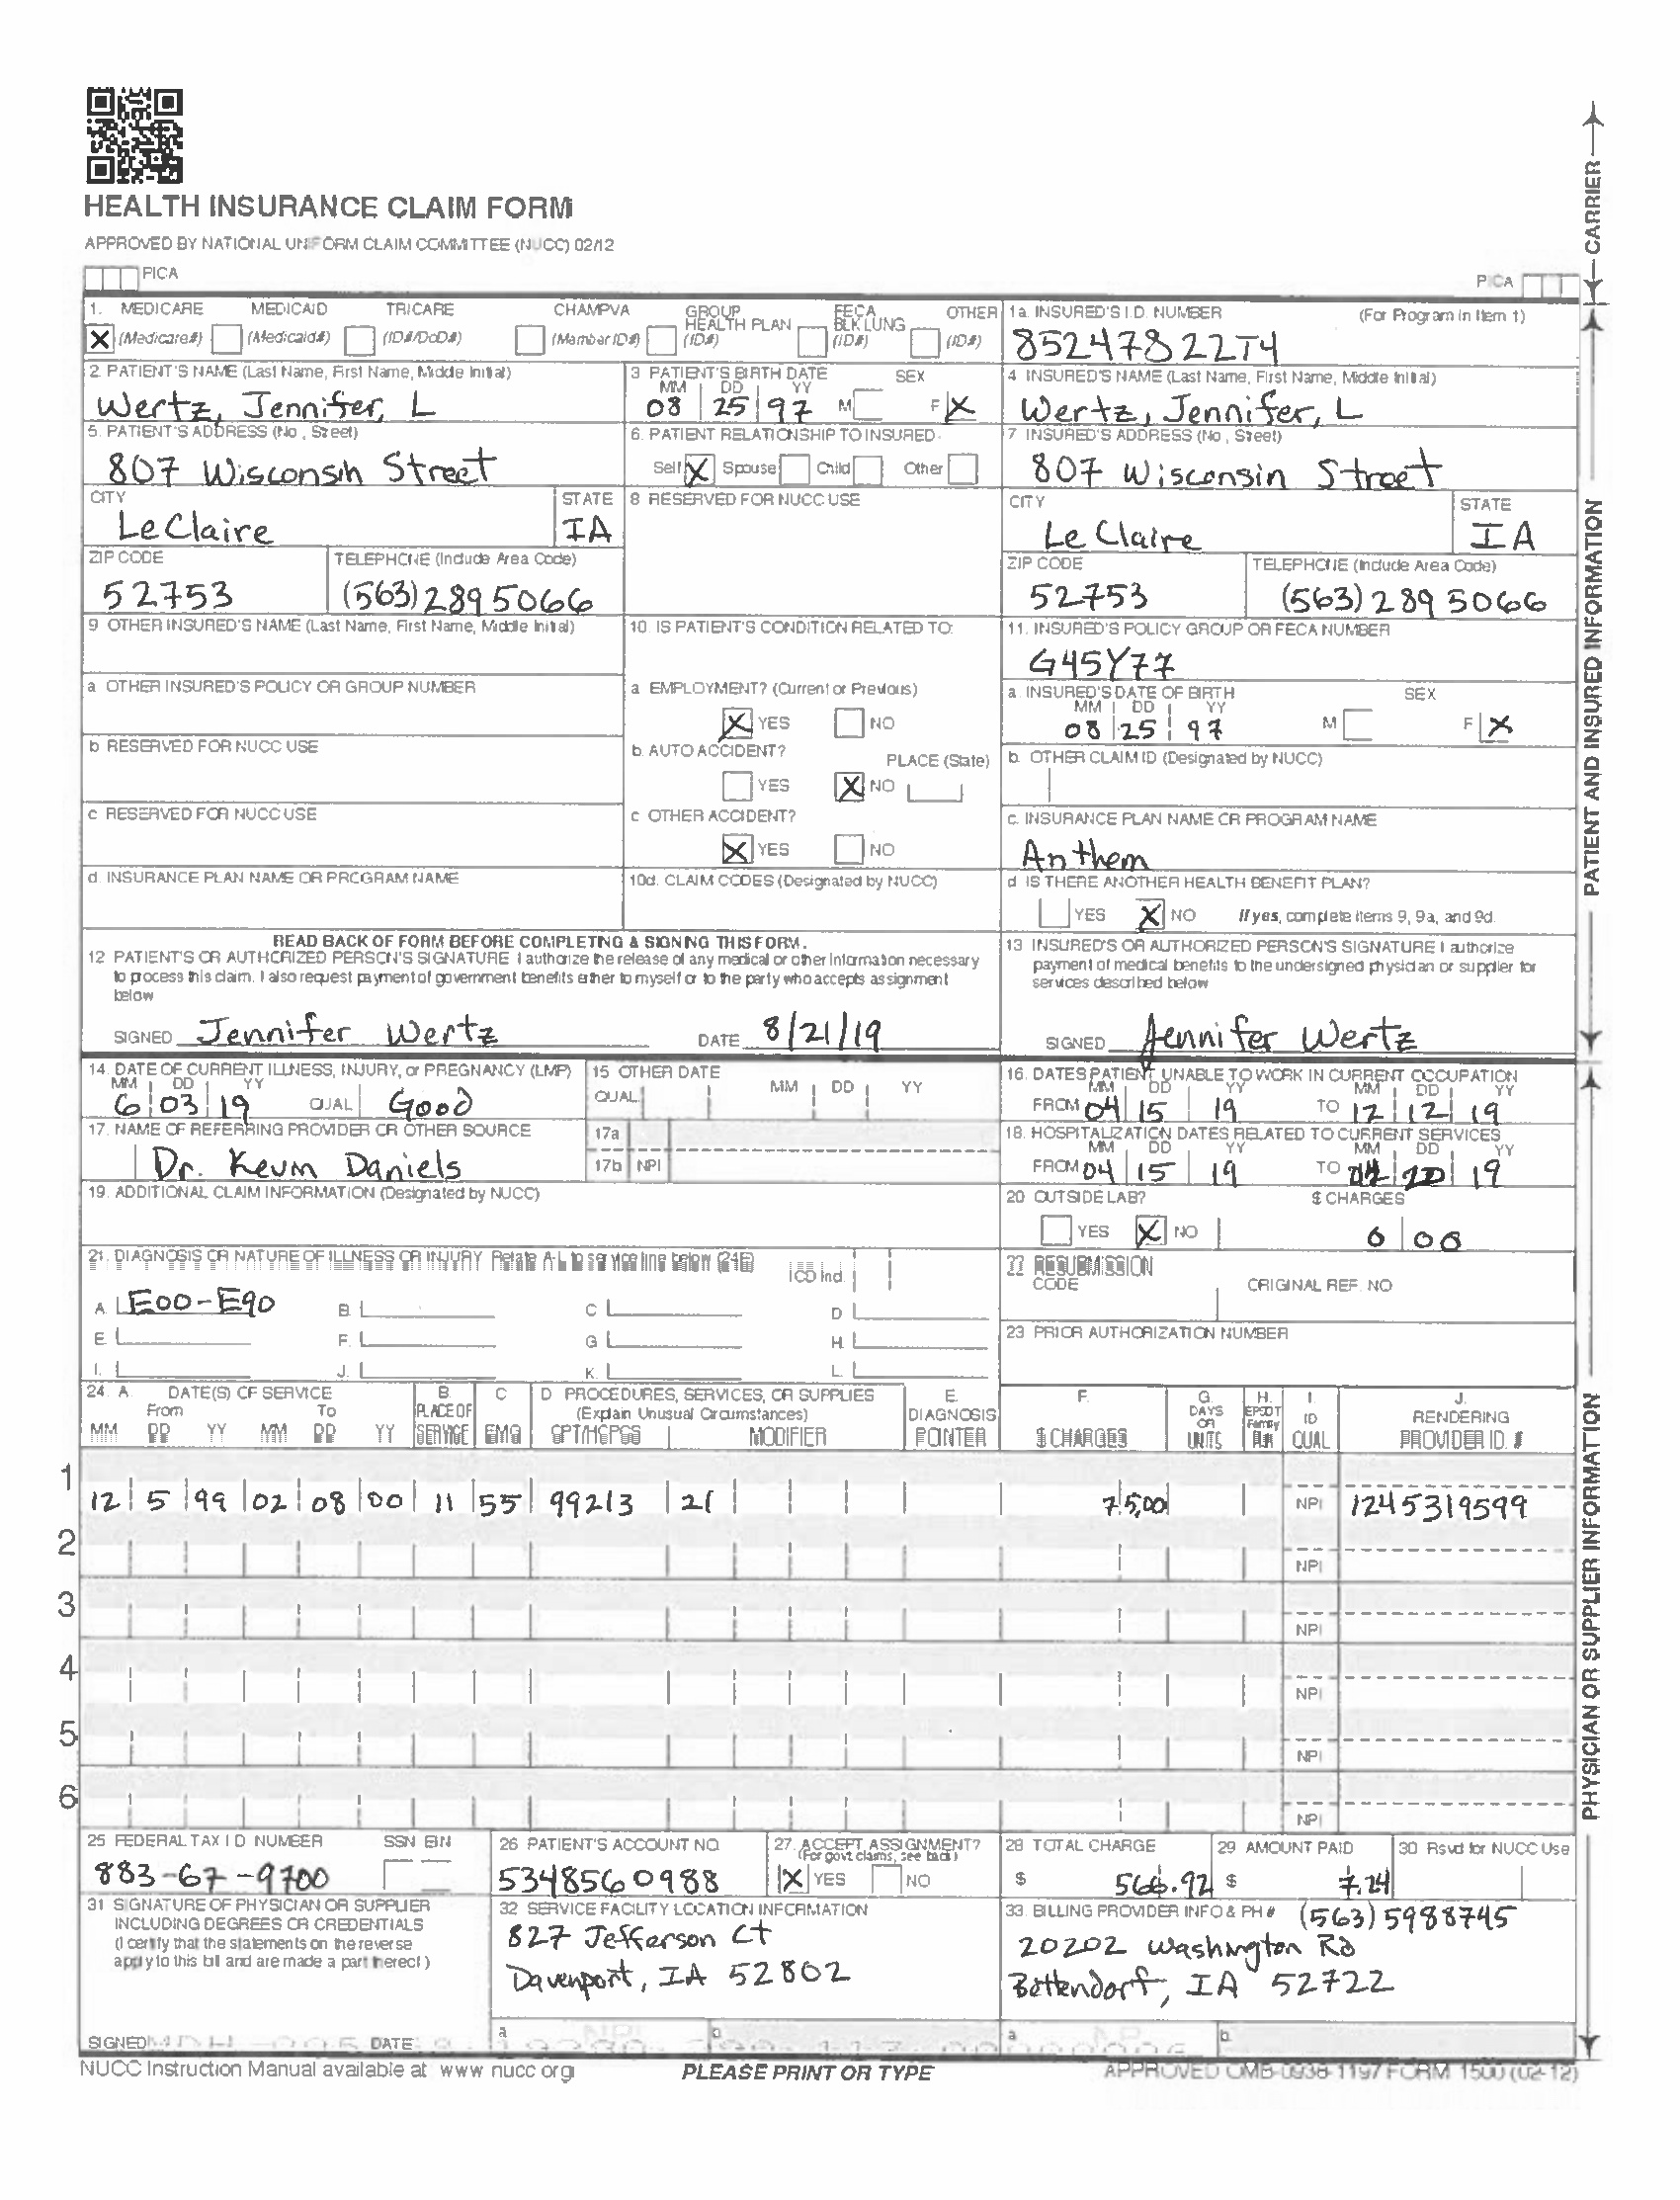 HEALTH INSURANCE CLAIM FORM
APPROVED BY NATIONAL UNIFORM CLAIM COMMITTEE (NUCC) 02/12
PICA
PICA
CARRIER
1. MEDICARE MEDICAID TRICARE CHAMPVA GROUP HEALTH PLAN FECA BLK LUNG OTHER
X (Medicare#) (Medicaid#) (ID#/DoD#) (Member ID#) (ID#) (ID#) (ID#)
1a. INSURED'S I.D. NUMBER (For Program in Item 1)
85247822T4
2. PATIENT'S NAME (Last Name, First Name, Middle Initial)
Wertz, Jennifer, L
3 PATIENT'S BIRTH DATE SEX
MM DD YY
08 25 97 M F X
4 INSURED'S NAME (Last Name, First Name, Middle Initial)
Wertz, Jennifer, L
5. PATIENT'S ADDRESS (No, Street)
807 Wisconsin Street
6. PATIENT RELATIONSHIP TO INSURED
Self X Spouse Child Other
7 INSURED'S ADDRESS (No, Street)
807 Wisconsin Street
CITY STATE
LeClaire IA
8 RESERVED FOR NUCC USE
CITY STATE
Le Claire IA
ZIP CODE TELEPHONE (Include Area Code)
52753 (563) 289 5066
ZIP CODE TELEPHONE (Include Area Code)
52753 (563) 289 5066
9 OTHER INSURED'S NAME (Last Name, First Name, Middle Initial)
10. IS PATIENT'S CONDITION RELATED TO:
11. INSURED'S POLICY GROUP OR FECA NUMBER
G45Y77
a OTHER INSURED'S POLICY OR GROUP NUMBER
a EMPLOYMENT? (Current or Previous)
X YES NO
a. INSURED'S DATE OF BIRTH SEX
MM DD YY
08 25 97 M F X
b RESERVED FOR NUCC USE
b. AUTO ACCIDENT? PLACE (State)
YES X NO
b. OTHER CLAIM ID (Designated by NUCC)
c RESERVED FOR NUCC USE
c OTHER ACCIDENT?
X YES NO
c. INSURANCE PLAN NAME OR PROGRAM NAME
Anthem
d. INSURANCE PLAN NAME OR PROGRAM NAME
10d. CLAIM CODES (Designated by NUCC)
d IS THERE ANOTHER HEALTH BENEFIT PLAN?
YES X NO If yes, complete items 9, 9a, and 9d.
PATIENT AND INSURED INFORMATION
READ BACK OF FORM BEFORE COMPLETING & SIGNING THIS FORM.
12 PATIENT'S OR AUTHORIZED PERSON'S SIGNATURE I authorize the release of any medical or other information necessary
to process this claim. I also request payment of government benefits either to myself or to the party who accepts assignment
below
SIGNED Jennifer Wertz DATE 8/21/19
13 INSURED'S OR AUTHORIZED PERSON'S SIGNATURE I authorize
payment of medical benefits to the undersigned physician or supplier for
services described below
SIGNED Jennifer Wertz
14. DATE OF CURRENT ILLNESS, INJURY, or PREGNANCY (LMP)
MM DD YY
6 03 19 QUAL Good
15 OTHER DATE
QUAL MM DD YY
16. DATES PATIENT UNABLE TO WORK IN CURRENT OCCUPATION
MM DD YY MM DD YY
FROM 04 15 19 TO 12 12 19
17. NAME OF REFERRING PROVIDER OR OTHER SOURCE
Dr. Kevin Daniels
17a
17b NPI
18. HOSPITALIZATION DATES RELATED TO CURRENT SERVICES
MM DD YY MM DD YY
FROM 04 15 19 TO 20 19
19. ADDITIONAL CLAIM INFORMATION (Designated by NUCC)
20 OUTSIDE LAB? $ CHARGES
YES X NO 0 00
21. DIAGNOSIS OR NATURE OF ILLNESS OR INJURY Relate A-L to service line below (24E) ICD Ind.
A. E00-E90 B. C D
E F. G H.
I. J. K. L.
22 RESUBMISSION
CODE ORIGINAL REF. NO
23 PRIOR AUTHORIZATION NUMBER
24. A. DATE(S) OF SERVICE B. C D PROCEDURES, SERVICES, OR SUPPLIES E. F. G. H. I. J.
From To PLACE OF (Explain Unusual Circumstances) DIAGNOSIS DAYS OR UNITS EPSDT Family Plan ID RENDERING
MM DD YY MM DD YY SERVICE EMG CPT/HCPCS MODIFIER POINTER $ CHARGES QUAL PROVIDER ID. #
1
12 5 99 02 08 00 11 55 99213 21 75,00 NPI 1245319599
2
NPI
3
NPI
4
NPI
5
NPI
6
NPI
PHYSICIAN OR SUPPLIER INFORMATION
25 FEDERAL TAX I D NUMBER SSN EIN
883-67-9700
26 PATIENT'S ACCOUNT NO.
5348560988
27. ACCEPT ASSIGNMENT?
(For govt claims, see back)
X YES NO
28 TOTAL CHARGE
$ 566.92
29 AMOUNT PAID
$ 7.24
30 Rsvd for NUCC Use
31 SIGNATURE OF PHYSICIAN OR SUPPLIER
INCLUDING DEGREES OR CREDENTIALS
(I certify that the statements on the reverse
apply to this bill and are made a part thereof.)
SIGNED DATE
32 SERVICE FACILITY LOCATION INFORMATION
827 Jefferson Ct
Davenport, IA 52802
a.
b.
33. BILLING PROVIDER INFO & PH # (563) 5988745
20202 Washington Rd
Bettendorf, IA 52722
a
b.
NUCC Instruction Manual available at www nucc org
PLEASE PRINT OR TYPE
APPROVED OMB-0938-1197 FORM 1500 (02-12)